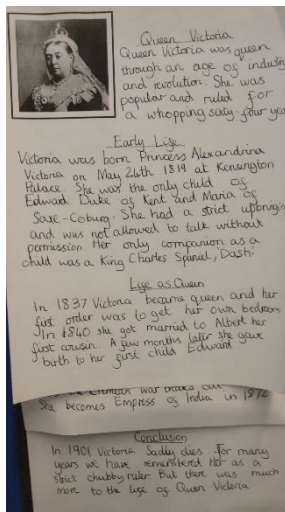 Queen Victoria
Queen Victoria was queen
through an age of industry
and revolution. She was
popular and ruled for
a whopping sixty-four yea
Early Life
Victoria was born Princess Alexandrina
Victoria on May 24th 1819 at Kensington
Palace. She was the only child of
Edward Duke of Kent and Maria of
Saxe-Coburg. She had a strict upbringin
and was not allowed to talk without
permission. Her only companion as a
child was a King Charles Spaniel, Dash.
Life as Queen
In 1837 Victoria became queen and her
first order was to get her own bedroom
In 1840 she got married to Albert her
first cousin. A few months later she gave
birth to her first child Edward
the Crimean war breaks out
becomes Empress of India in 1872
Conclusion
In 1901 Victoria Sadly dies. For many
years we have remembered her as a
strict chubby ruler. But there was much
more to the life of Queen Victoria